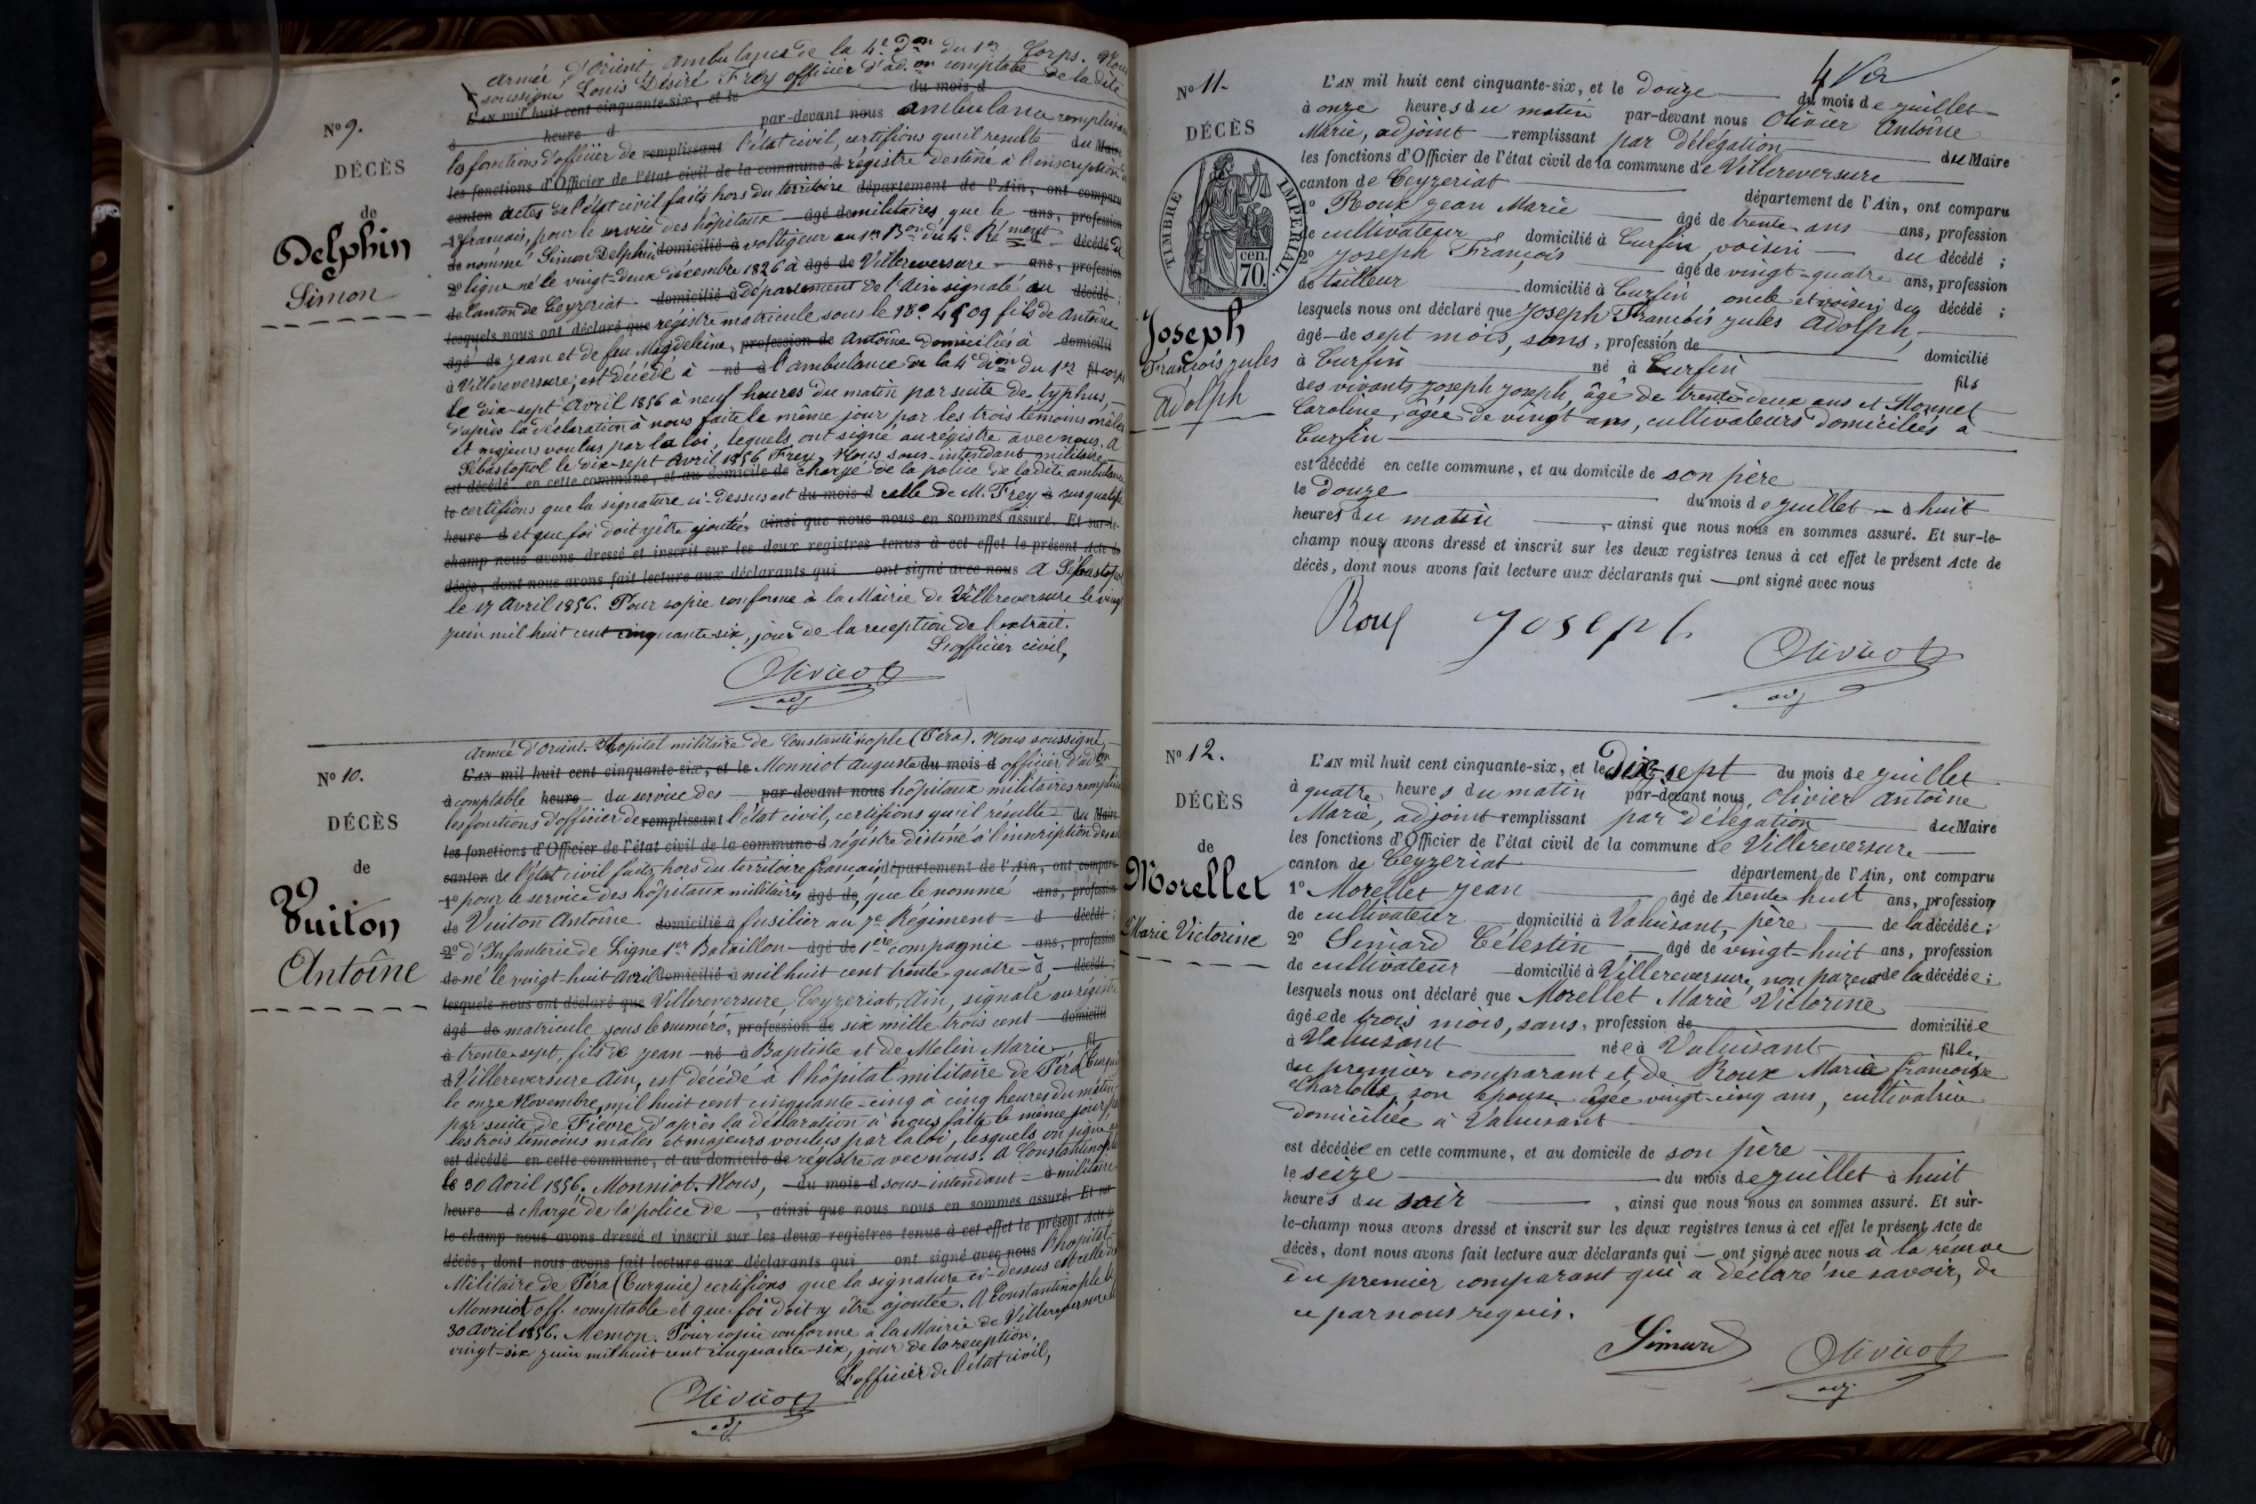 Armée d'Orient, Ambulance de la 4e Don du 1er Corps. Nous
soussigné Louis Désiré Frey officier d'ad.on comptable de la dite
L'AN mil huit cent cinquante-six, et le du mois d
à heure d par-devant nous ambulance remplissant
N° 9.
les fonctions d'officier de remplissant l'état civil, certifions qu'il résulte du Maire
DÉCÈS
les fonctions d'Officier de l'état civil de la commune d régistre destiné à l'inscription
canton actes de l'état civil faits hors du territoire département de l'Ain, ont comparu
de
1° français, pour le service des hôpitaux âgé de militaires, que le ans, profession
Delphin
de nommé Simon Delphin domicilié à voltigeur au 1er Bon du 4e Rément décédé de
Simon
2° ligne né le vingt-deux décembre 1826 à âgé de Villereversure ans, profession
de canton de Ceyzeriat domicilié à département de l'Ain signalé au décédé ;
lesquels nous ont déclaré que régistre matricule sous le N° 4509 fils de Antoine
âgé de Jean et de feu Magdeleine, profession de Antoine domiciliés à domicilié
à Villereversure, est décédé à né à l'ambulance de la 4e dion du 1er fil corps
le dix-sept Avril 1856 à neuf heures du matin par suite de typhus,
d'après la déclaration à nous faite le même jour, par les trois témoins mâles
et majeurs voulus par la loi, lequels ont signé au régistre avec nous. A
Sébastopol le dix-sept Avril 1856 Frey. Nous sous-intendant militaire
est décédé en cette commune, et au domicile de chargé de la police de la dite ambulance
le certifions que la signature ci-dessus est du mois d celle de M. Frey à
heure d et que foi doit y être ajoutée. ainsi que nous nous en sommes assuré. Et sur-le-
champ nous avons dressé et inscrit sur les deux registres tenus à cet effet le présent Acte de
décès, dont nous avons fait lecture aux déclarants qui ont signé avec nous A Sébastopol
le 17 Avril 1856. Pour copie conforme à la Mairie de Villereversure le vingt
juin mil huit cent cinquante six, jour de la reception de l'extrait.
L'officier civil,
Olivier
adj
Armée d'Orient. Hôpital militaire de Constantinople (Péra). Nous soussigné
L'AN mil huit cent cinquante-six, et le Monniot Auguste du mois d officier d'adon
N° 10.
à comptable heure du service des par-devant nous hôpitaux militaires
les fonctions d'officier de remplissant l'état civil, certifions qu'il résulte du Maire
DÉCÈS
les fonctions d'Officier de l'état civil de la commune d régistre destiné à l'inscription
canton de l'état civil faits hors du territoire français département de l'Ain, ont comparu
de
1° pour le service des hôpitaux militaires âgé de, que le nommé ans, profession
Vuiton
de Vuiton Antoine domicilié à fusilier au 7e Régiment d décédé ;
Antoîne
2° d'Infanterie de Ligne 1er Bataillon âgé de 1ere compagnie ans, profession
de né le vingt-huit Avril domicilié à mil huit cent trente quatre à décédé ;
lesquels nous ont déclaré que Villereversure, Ceyzeriat, Ain, signalé au régistre
âgé de matricule sous le numéro, profession de six mille trois cent domicilié
à trente-sept, fils de Jean né à Baptiste et de Melin Marie fil
d Villereversure Ain, est décédé à l'hôpital militaire de Péra
le onze Novembre mil huit cent cinquante-cinq à cinq heures du matin
par suite de Fièvre, d'après la déclaration à nous faite le même jour
les trois témoins mâles et majeurs voulus par la loi, lesquels on signé
est décédé en cette commune, et au domicile de régistre avec nous. A Constantinople
le 30 Avril 1856. Monniot. Nous, du mois d sous-intendant à militaire
heure d chargé de la police de , ainsi que nous nous en sommes assuré. Et sur-
le-champ nous avons dressé et inscrit sur les deux registres tenus à cet effet le présent Acte de
décès, dont nous avons fait lecture aux déclarants qui ont signé avec nous l'hopital
Militaire de Péra (Turquie) certifions que la signature ci-dessus est celle de
Monniot off. comptable et que foi doit y être ajoutée. A Constantinople le
30 Avril 1856. Memon. Pour copie conforme à la Mairie de Villereversure le
vingt-six juin mil huit cent cinquante-six, jour de la reception.
L'officier de l'état civil,
Olivier
adj
4
N° 11.
L'AN mil huit cent cinquante-six, et le Douze du mois de juillet
à onze heures du matin par-devant nous Olivier Antoîne
DÉCÈS
Marie, adjoint remplissant par délégation du Maire
les fonctions d'Officier de l'état civil de la commune de Villereversure
TIMBRE IMPÉRIAL
cen. 70.
canton de Ceyzeriat département de l'Ain, ont comparu
1° Roux Jean Marie âgé de trente ans ans, profession
de cultivateur, domicilié à Curfin, voisin du décédé ;
2° Joseph François âgé de vingt-quatre ans, profession
de tailleur domicilié à Curfin, oncle et voisin du décédé ;
Joseph
François Jules
Adolph
lesquels nous ont déclaré que Joseph François Jules Adolph,
âgé de sept mois, sans, profession de domicilié
à Curfin né à Curfin fils
des vivants Joseph Joseph, âgé de trente deux ans et Monnet
Caroline, âgée de vingt ans, cultivateurs domiciliés à
Curfin
est décédé en cette commune, et au domicile de son père
le Douze du mois de juillet à huit
heures du matin , ainsi que nous nous en sommes assuré. Et sur-le-
champ nous avons dressé et inscrit sur les deux registres tenus à cet effet le présent Acte de
décès, dont nous avons fait lecture aux déclarants qui ont signé avec nous
Roux Joseph
Olivier
adj
N° 12.
L'AN mil huit cent cinquante-six, et le dix-sept du mois de juillet
à quatre heures du matin par-devant nous, Olivier Antoîne
DÉCÈS
Marie, adjoint remplissant par délégation du Maire
les fonctions d'Officier de l'état civil de la commune de Villereversure
de
canton de Ceyzeriat département de l'Ain, ont comparu
Morellet
Marie Victorine
1° Morellet Jean âgé de trente huit ans, profession
de cultivateur domicilié à Valuisant, père de la décédée ;
2° Simard Célestin âgé de vingt-huit ans, profession
de cultivateur domicilié à Villereversure, non parent de la décédée ;
lesquels nous ont déclaré que Morellet Marie Victorine
âgée de trois mois, sans, profession de domiciliée
à Valuisant née à Valuisant fille
du premier comparant et de Roux Marie françoise
Charlotte, son épouse, âgée vingt-cinq ans, cultivatrice
domiciliée à Valuisant
est décédée en cette commune, et au domicile de son père
le seize du mois de juillet à huit
heures du soir , ainsi que nous nous en sommes assuré. Et sur-
le-champ nous avons dressé et inscrit sur les deux registres tenus à cet effet le présent Acte de
décès, dont nous avons fait lecture aux déclarants qui ont signé avec nous à la réserve
du premier comparant qui a déclaré ne savoir, de
ce par nous requis.
Simard
Olivier
adj